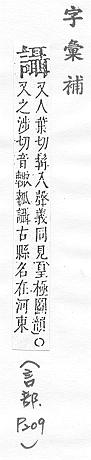 字彙補
讘
又人葉切髯入聲義同見皇極圖韻○
又之涉切音輒瓡讘古縣名在河東
(言部. P209)